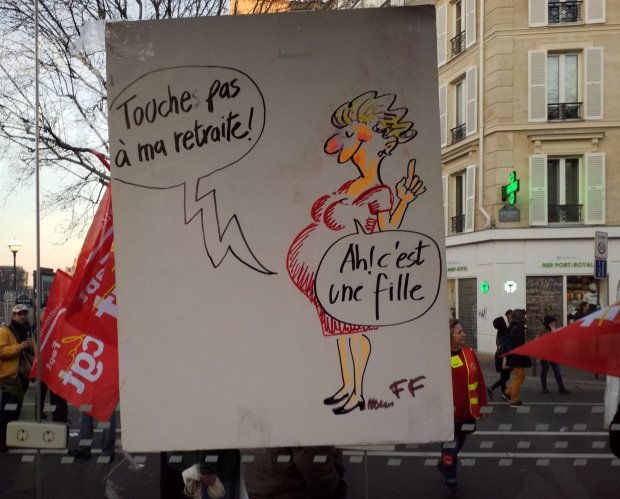 Touche pas
à ma retraite!
Ah! c'est
une fille
FF
cgt
cgt
RER PORT-ROYAL
PORT-ROYAL